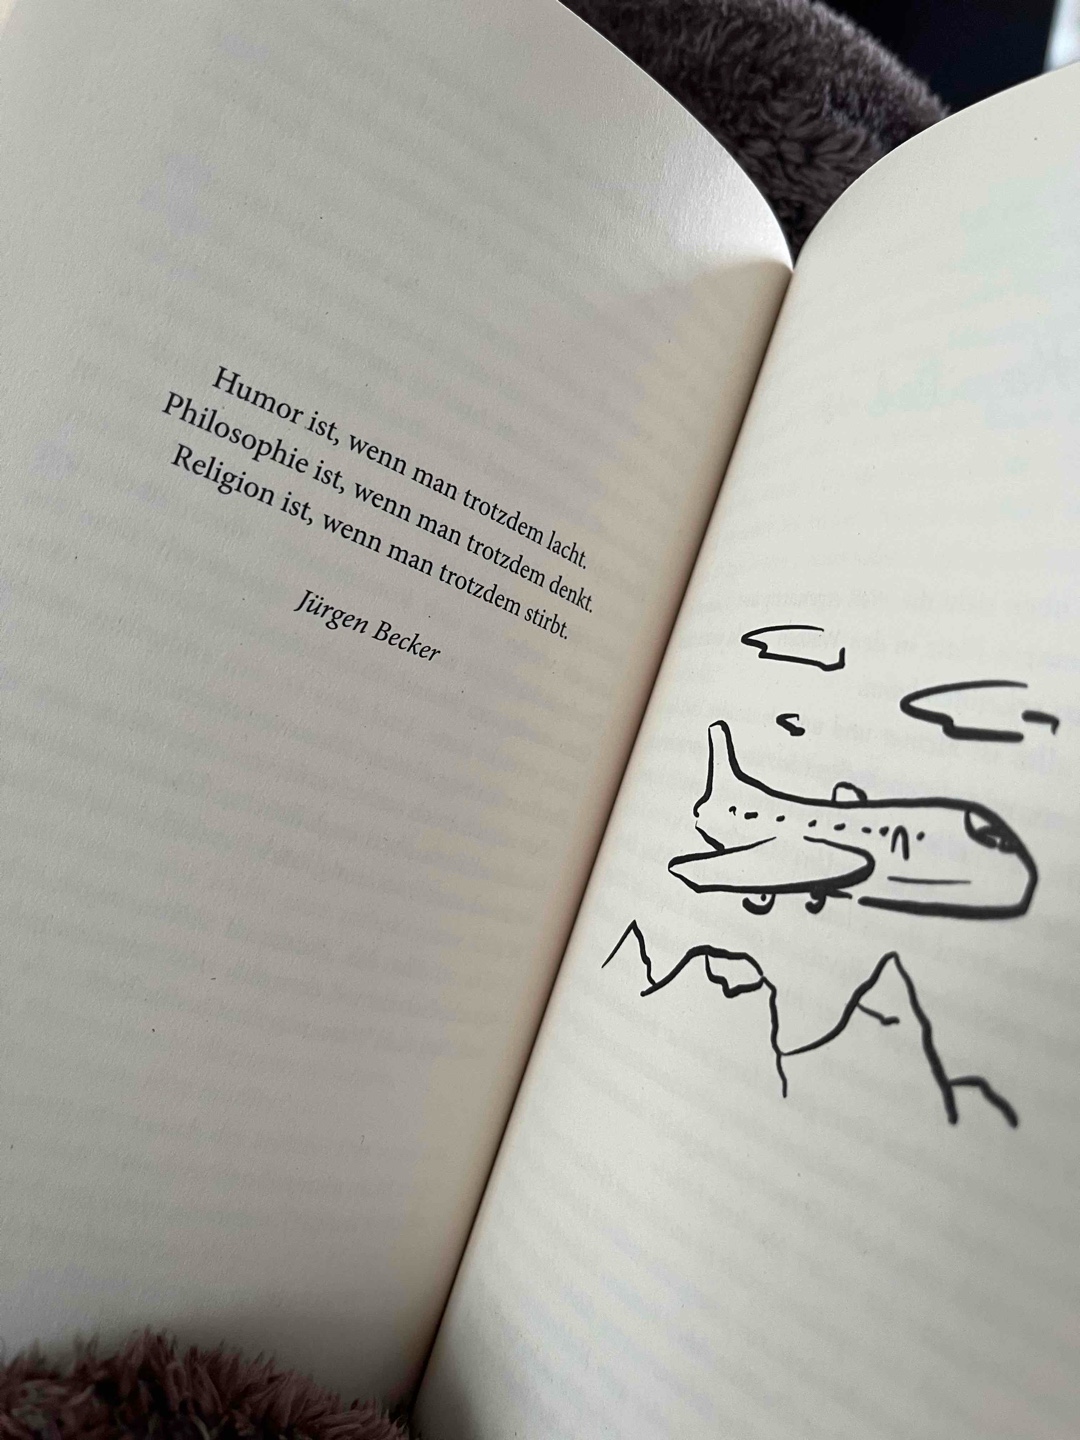 Humor ist, wenn man trotzdem lacht.
Philosophie ist, wenn man trotzdem denkt.
Religion ist, wenn man trotzdem stirbt.
Jürgen Becker